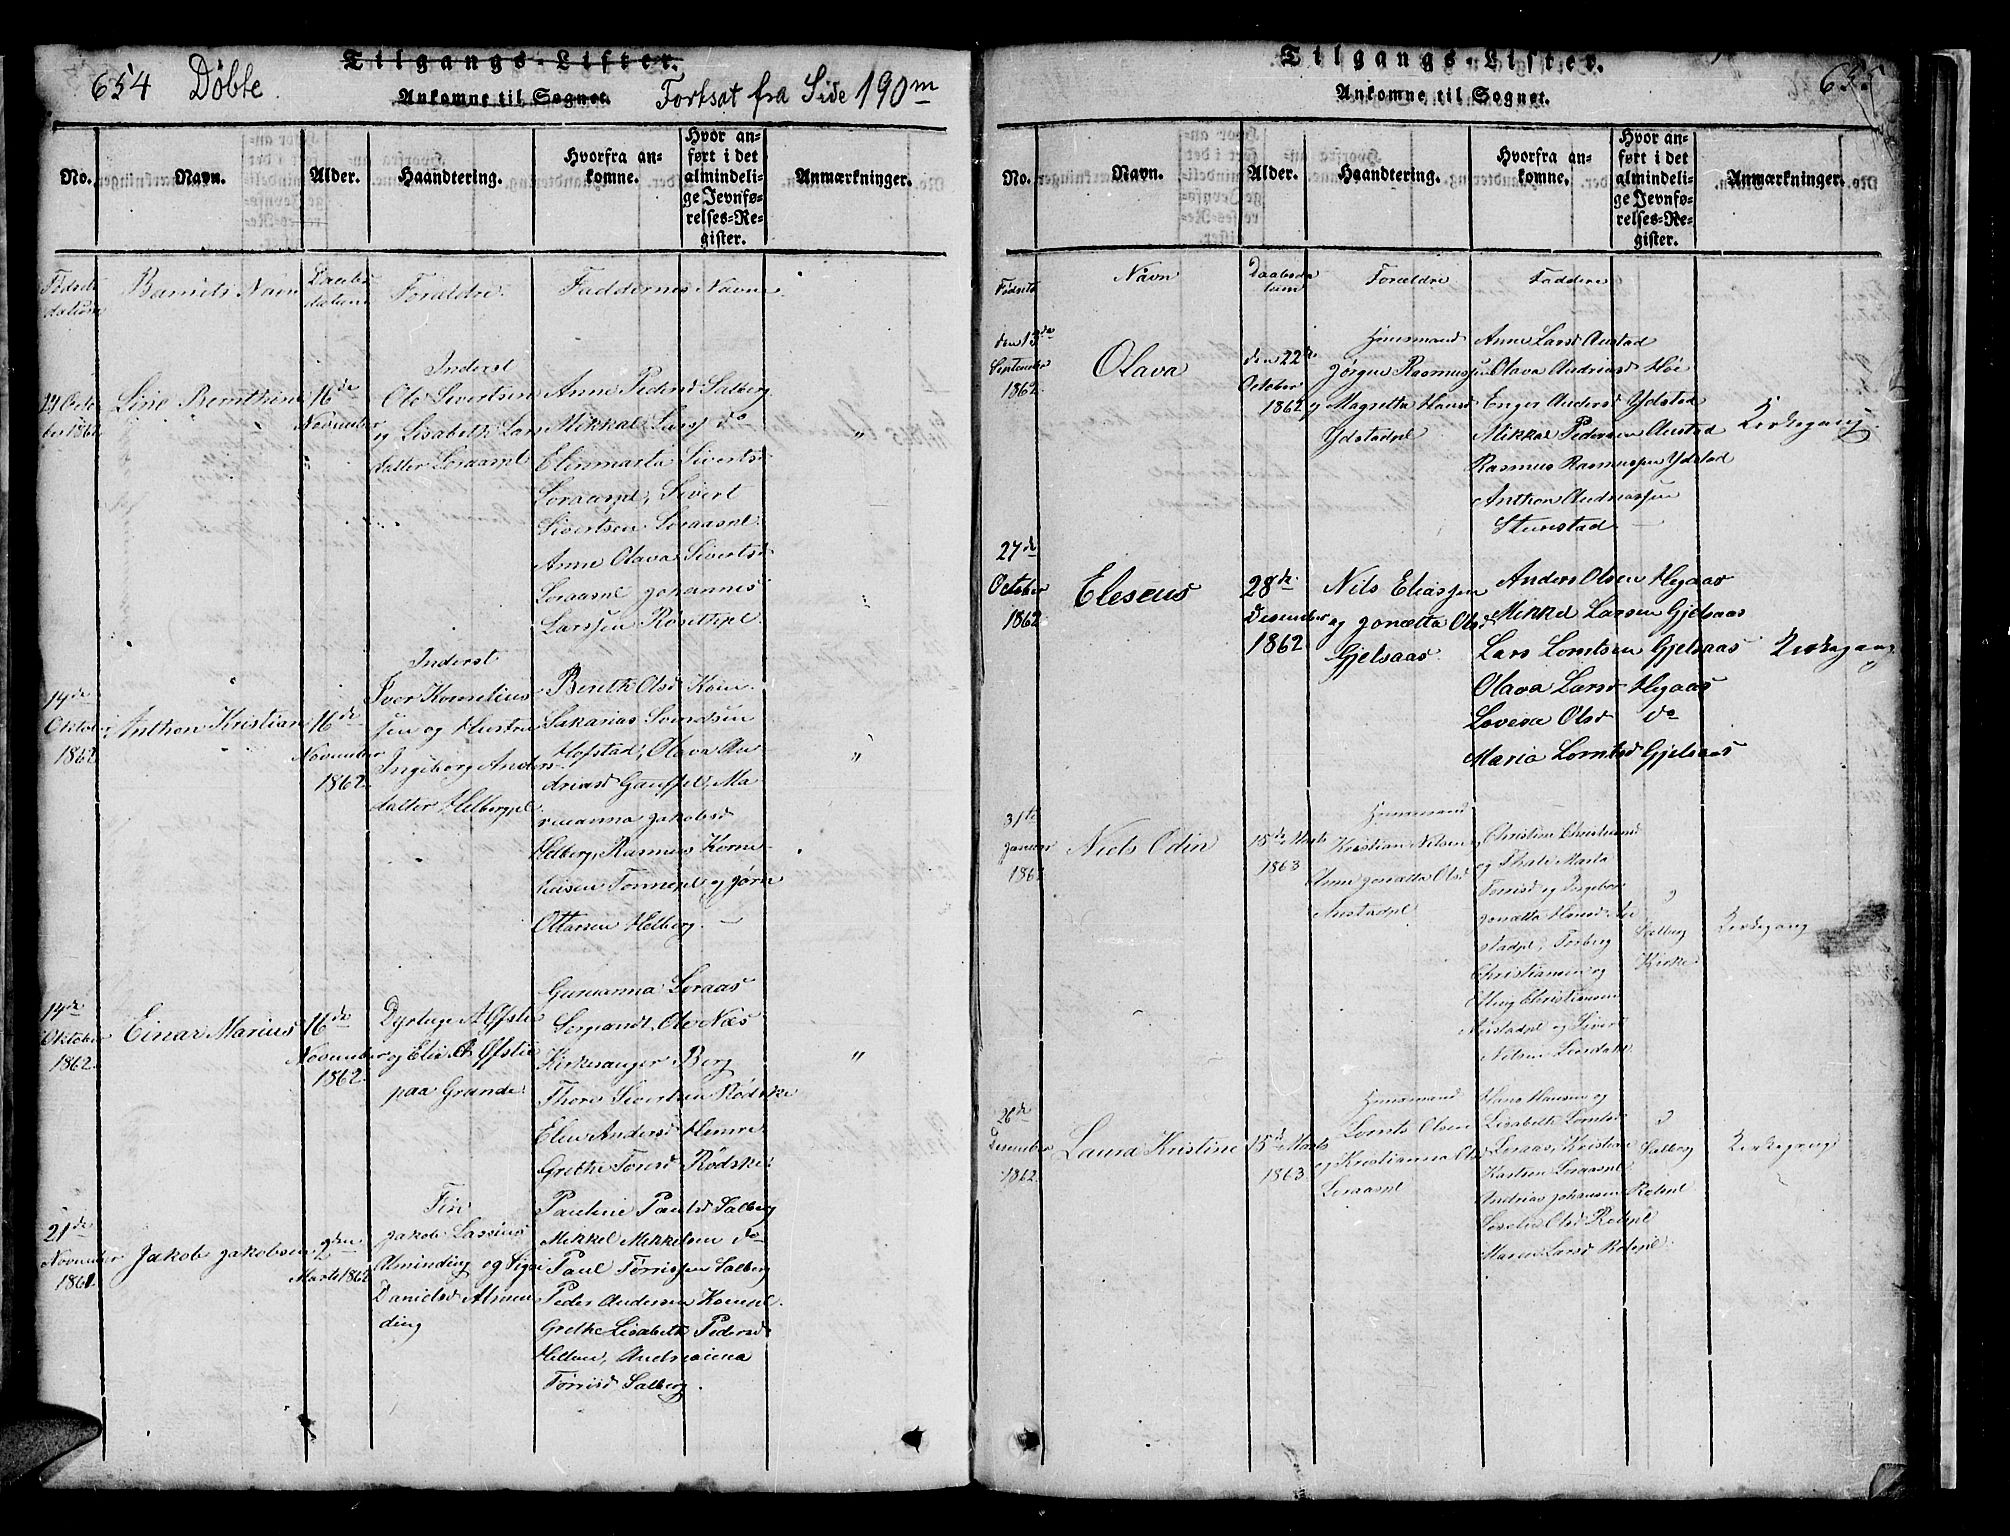 654 Döbte.
Tilgangs-Lister.
Ankomne til Sognet.
Fortsat fra Side 190m
No.
Navn.
Alder.
Haandtering.
Hvorfra an-
komne.
Hvor an-
ført i det
almindeli-
ge Jevnfø-
relses-Re-
gister.
Anmærkninger.
Födsels
datum
Barnets Navn
Daabs
datum
Forældre.
Faddernes Navne.
Octo
ber 1862
Line Bernthine
16de
November
Inderst
Ole Sivertsen
og Lisabeth Lars
datter Loraaspl
Anne Pedersd Salberg
Mikkal Larss do
Elenmarta Sivertsd
Loraaspl, Sivert
Sivertsen Loraaspl.
Anne Olava Sivertsd
Loraaspl Johannes
Larssen Rösethpl.
"
14de
Oktober
1862
Anthon Kristian
16de
November
1862
Inderst
Iver Kornelius
sen og Hustru
Ingeborg Anders
datter Helbergpl
Bereth Olsd Koin
Sakarias Svendsen
Hofstad, Olava An
driasd Gausspl, Ma
rieanna Jakobsd
Helberg, Rasmus Korne
liusen Tonnepl og Jörn
Ottarsen Helberg.
"
14de
Oktober
1862.
Einar Marius
16de
November
1862
Dyrlæge A Öfstie
og Elie A Öfstie
paa Grande.
Gurianna Loraas
Sergeandt Ole Næs
Kirkesanger Berg
Thore Sivertsen Rödske
Elen Andersd Hemre
Grethe Toresd Rödske.
"
21de
November
1861
Jakob Jakobsen
9den
Marts 1862
Fin
Jakob Lassius
Alminding og Sigri
Danielsd Almen
ding
Pauline Paulsd Salberg
Mikkel Mikkelsen do
Paul Tørrissen Salberg
Peder Andersen Koinpl.
Grethe Lisabeth Pedersd
Hellem, Andrianna
Tørrisd Salberg.
Tilgangs-Lister.
655
Ankomne til Sognet.
No.
Navn.
Alder.
Haandtering.
Hvorfra an-
komne.
Hvor an-
ført i det
almindeli-
ge Jevnfø-
relses-Re-
gister.
Anmærkninger.
Födsels
Navn
Daabsda
tum
Forældre
Faddere
den 13de
September
1862
Olava
den 22de
October
1862
Huusmand
Jörgen Rasmussen
og Magretta Hansd
Ydstadpl
Anne Larsd Austad
Olava Andriasd Höe
Enger Andersd Ydstad
Mikkal Pedersen Austad
Rasmus Rasmussen Ydstad
Anthon Andreassen
Stunstad
Kirkegang
27de
October
1862
Eleseus
28de
Desember
1862
Nils Eliassen
og Jonetta Olsd
Gjelsaas
Anders Olsen Hegaas
Mikkel Larsen Gjelsaas
Lars Lomtsen Gjelsaas
Olava Larsd Hegaas
Lovise Olsd do
Maria Lomtsd Gjelsaas
Kirkegang
31te
Januar
Niels Odin
15de Marts
1863
Huusmand
Kristian Nilsen
Anne Jonetta Olsd
Austadpl
Christine Christiansd
og Thale Marta
Torrisd og Ingebor
Jonetta Hansd Au
stadpl, Torberg
Christiansen og
Christiansen
Austadpl og Sivert
Nilsen
Salberg
Kirke
Kirkegang
26de
Desember
1862
Laura Kristine
15de Marts
1863
Huusmand
Lomts Olsen
og Kristianna Olsd
Loraaspl
Hans Hansen og
Lisabeth Lomtsd
Loraas, Kristian
Karlsen Loraaspl
Andrias Johansen Rolspl
Olsd Rolspl
Maren Larsd Rolspl.
Salberg
Kirkegang